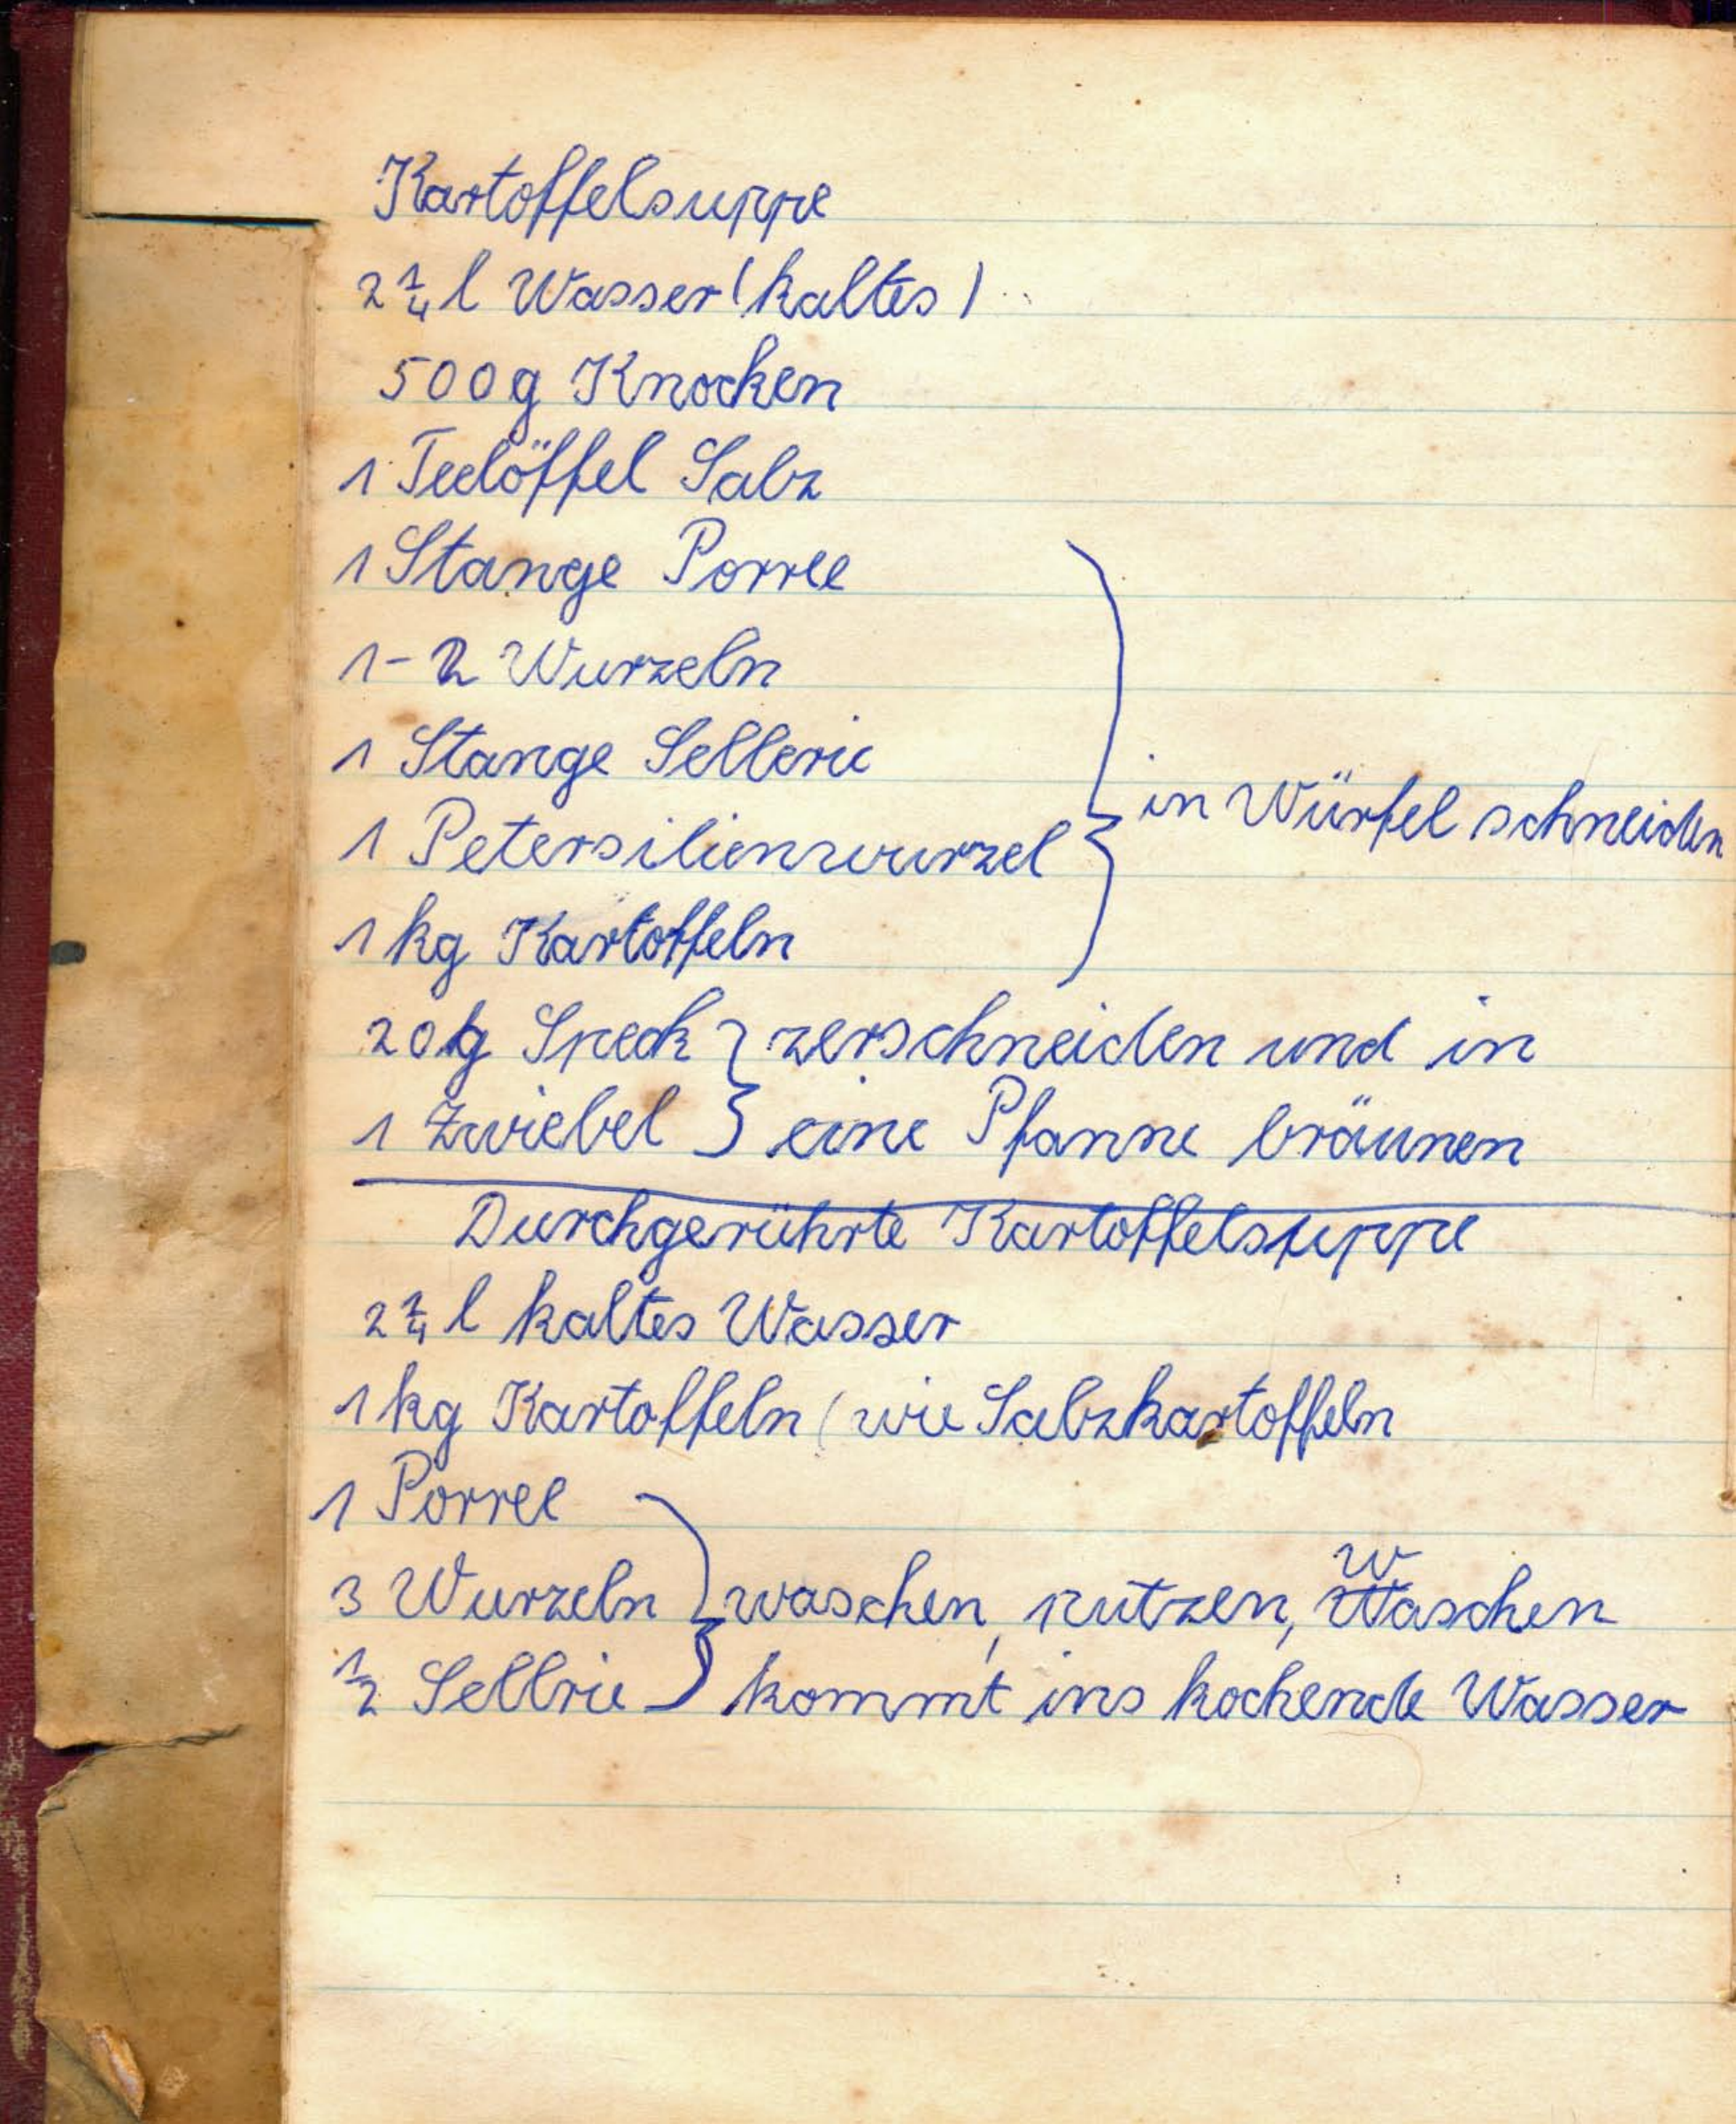 Kartoffelsuppe
2 1/4 l Wasser (kaltes)
500g Knochen
1 Teelöffel Salz
1 Stange Porree
1-2 Wurzeln
1 Stange Sellerie
1 Petersilienwurzel
in Würfel schneiden
1 kg Kartoffeln
20 g Speck } zerschneiden und in
1 Zwiebel } eine Pfanne bräunen
Durchgerührte Kartoffelsuppe
2 1/4 l kaltes Wasser
1 kg Kartoffeln (wie Salzkartoffeln
1 Porree
3 Wurzeln } waschen, putzen, Waschen
1/2 Sellrie } kommt ins kochende Wasser